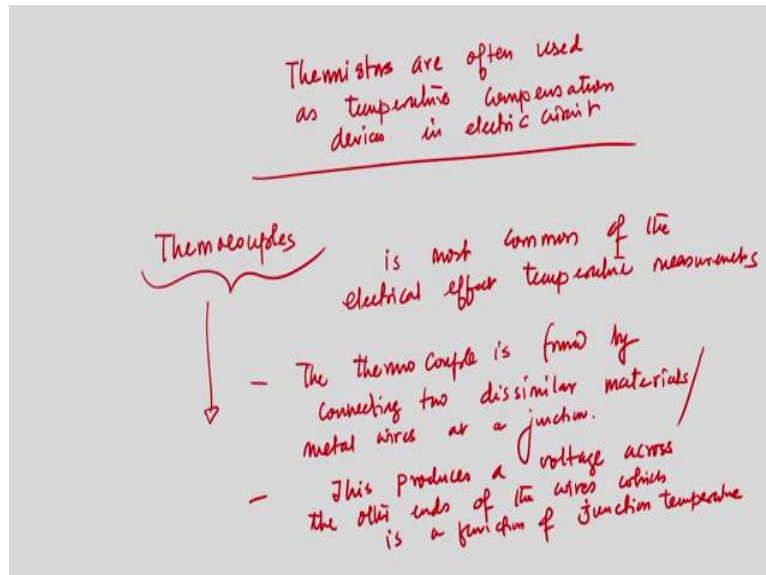 Thermistors are often used
as temperature compensation
devices in electric circuit
Thermocouples
is most common of the
electrical effect temperature measurements
- The thermocouple is formed by
connecting two dissimilar materials/
metal wires at a junction.
- This produces a voltage across
the other ends of the wires which
is a function of junction temperature